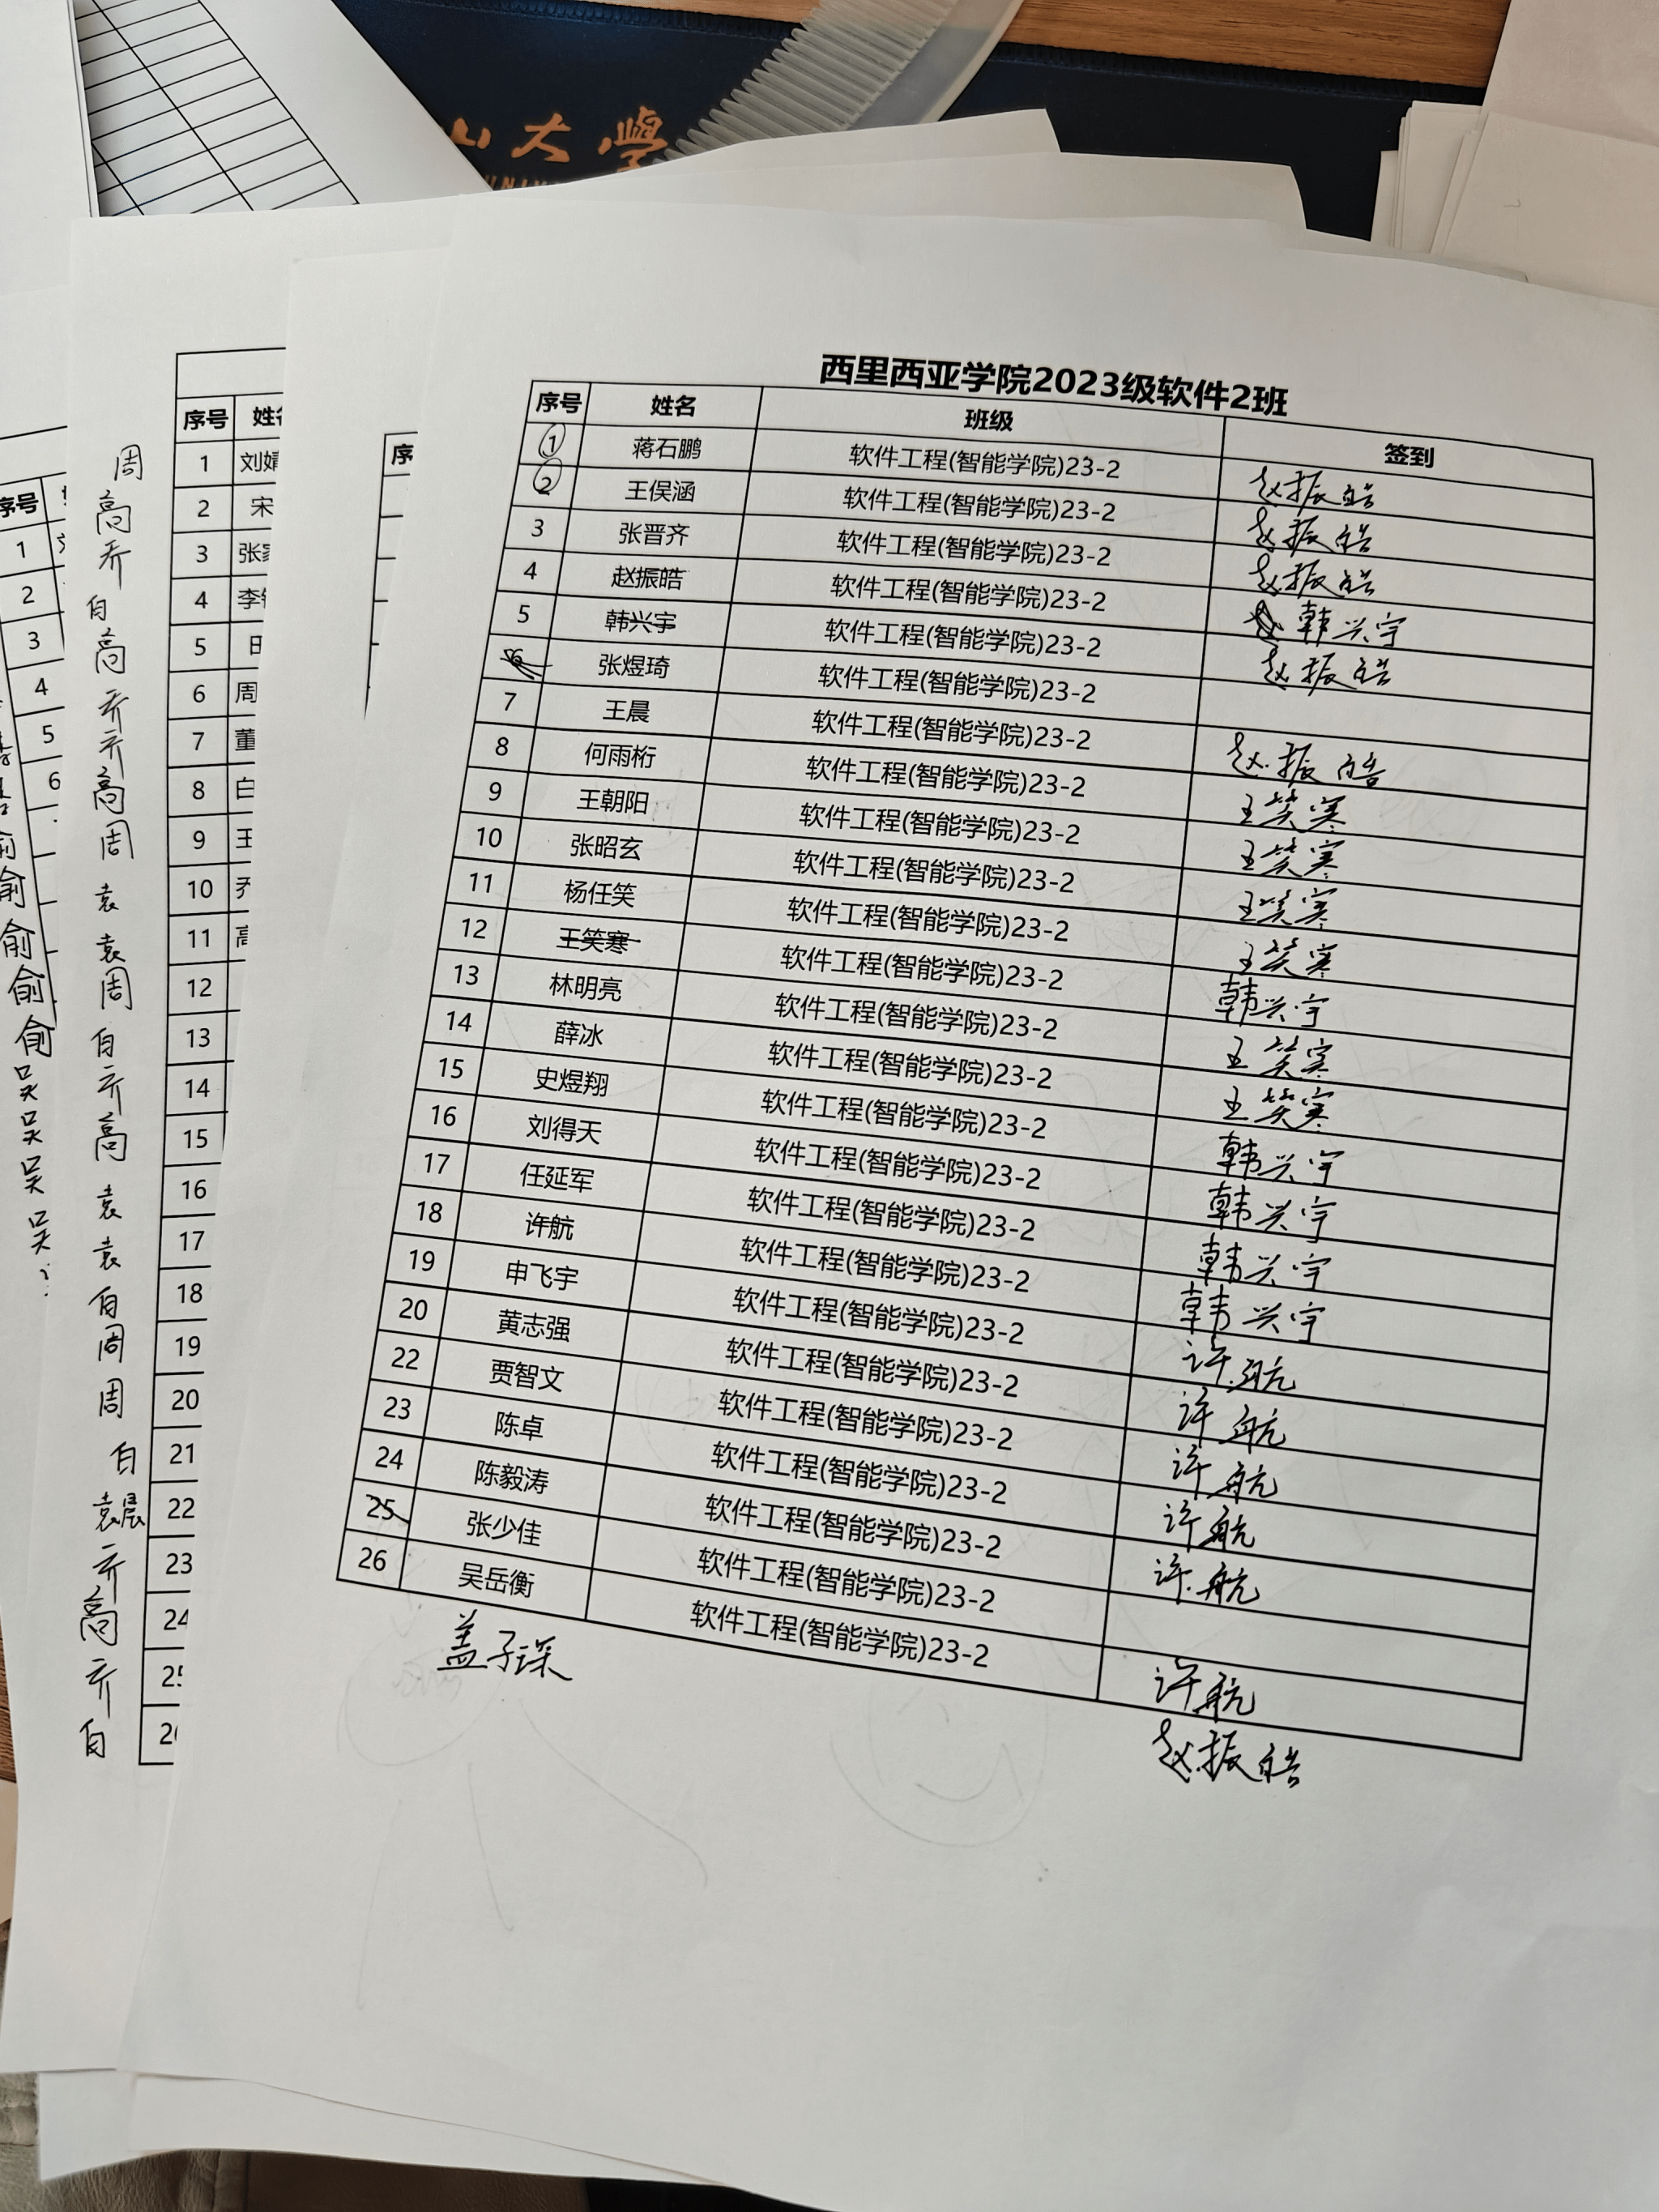 山大學
西里西亚学院2023级软件2班
序号 姓名 班级 签到
1 蒋石鹏 软件工程(智能学院)23-2 赵振皓
2 王俣涵 软件工程(智能学院)23-2 赵振皓
3 张晋齐 软件工程(智能学院)23-2 赵振皓
4 赵振皓 软件工程(智能学院)23-2 韩兴宇
5 韩兴宇 软件工程(智能学院)23-2 赵振皓
6 张煜琦 软件工程(智能学院)23-2
7 王晨 软件工程(智能学院)23-2 赵振皓
8 何雨桁 软件工程(智能学院)23-2 王笑寒
9 王朝阳 软件工程(智能学院)23-2 王笑寒
10 张昭玄 软件工程(智能学院)23-2 王笑寒
11 杨任笑 软件工程(智能学院)23-2 王笑寒
12 王笑寒 软件工程(智能学院)23-2 韩兴宇
13 林明亮 软件工程(智能学院)23-2 王笑寒
14 薛冰 软件工程(智能学院)23-2 王笑寒
15 史煜翔 软件工程(智能学院)23-2 韩兴宇
16 刘得天 软件工程(智能学院)23-2 韩兴宇
17 任延军 软件工程(智能学院)23-2 韩兴宇
18 许航 软件工程(智能学院)23-2 韩兴宇
19 申飞宇 软件工程(智能学院)23-2 许航
20 黄志强 软件工程(智能学院)23-2 许航
22 贾智文 软件工程(智能学院)23-2 许航
23 陈卓 软件工程(智能学院)23-2 许航
24 陈毅涛 软件工程(智能学院)23-2 许航
25 张少佳 软件工程(智能学院)23-2
26 吴岳衡 软件工程(智能学院)23-2 许航
盖子深 赵振皓
序
序号 姓
周 1 刘
高 2 宋
乔 3 张
白 4 李
高 5
乔 6 周
乔 7 董
高 8 白
周 9 王
袁 10 乔
袁 11 高
周 12
白 13
乔 14
高 15
袁 16
袁 17
白 18
周 19
周 20
白 21
袁晨 22
乔 23
高 24
乔 25
白
序号
1
2
3
4
5
6
俞
俞
俞
俞
吴
吴
吴
吴